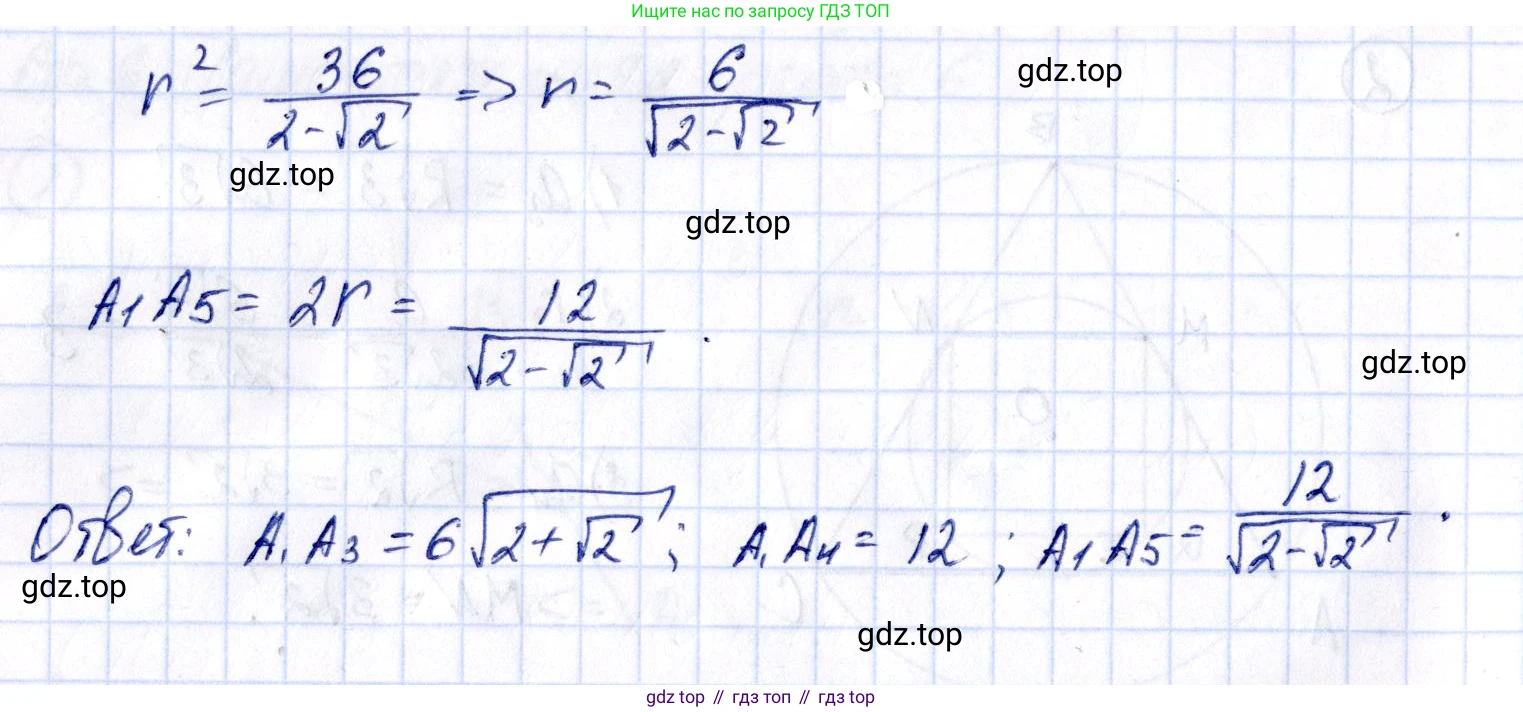 Ищите нас по запросу ГДЗ ТОП
r² = 36/(2-√2) => r = 6/√(2-√2)
gdz.top
gdz.top
gdz.top
A₁A₅ = 2r = 12/√(2-√2).
gdz.top
Ответ: A₁A₃ = 6√(2+√2); A₁A₄ = 12; A₁A₅ = 12/√(2-√2).
gdz.top
gdz.top
gdz top // гдз топ // гдз top